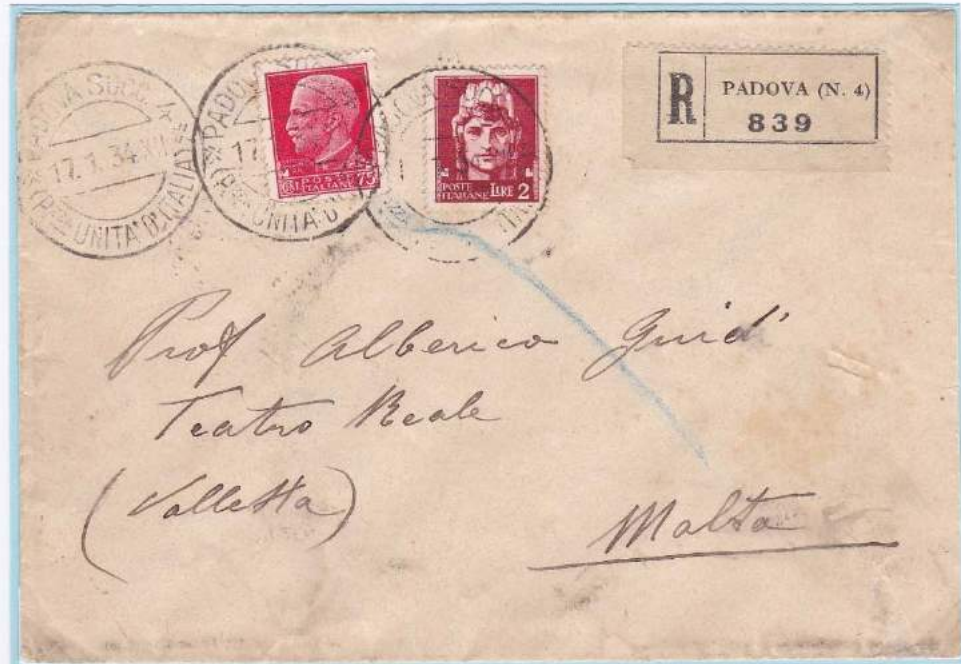 PADOVA SUCC. 4
17.1.34 XII
(Pza UNITA' D'ITALIA)
PADOVA
17
UNITA' D'
CENT. POSTE 75
ITALIANE
POSTE
ITALIANE LIRE 2
R
PADOVA (N. 4)
839
Prof Alberico Guidi
Teatro Reale
(Valletta)
Malta